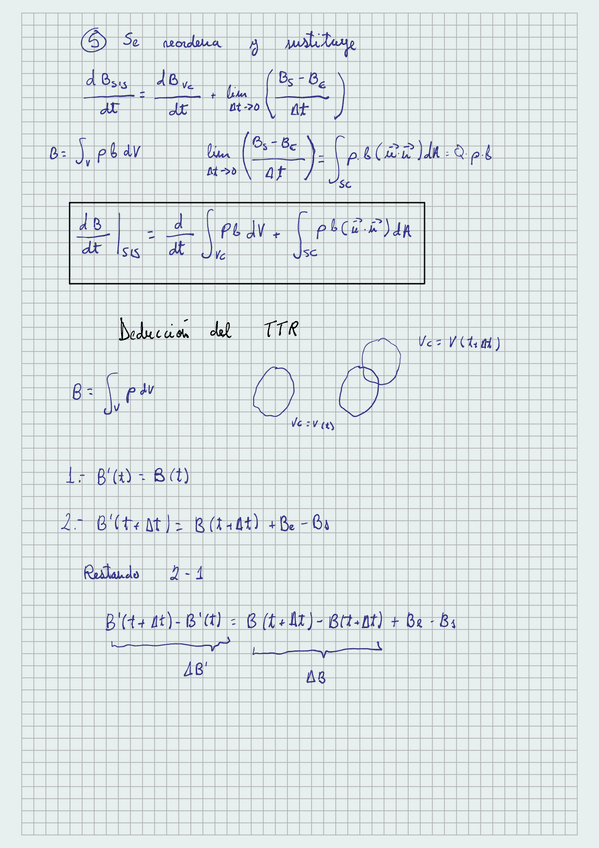 ⑤ Se reordena y sustituye
dB_SIS/dt = dB_VC/dt + lim Δt→0 ((B_s - B_e)/Δt)
B = ∫_V ρ b dV lim Δt→0 ((B_s - B_e)/Δt) = ∫_SC ρ·b(u⃗·n⃗)dA = Q·ρ·b
dB/dt|_SIS = d/dt ∫_VC ρ b dV + ∫_SC ρ b(u⃗·n⃗)dA
Deducción del TTR
Vc = V(t+Δt)
B = ∫_V ρ dV
Vc = V(t)
1.- B'(t) = B(t)
2.- B'(t+Δt) = B(t+Δt) + Be - Bs
Restando 2-1
B'(t+Δt) - B'(t) = B(t+Δt) - B(t+Δt) + Be - Bs
ΔB' ΔB